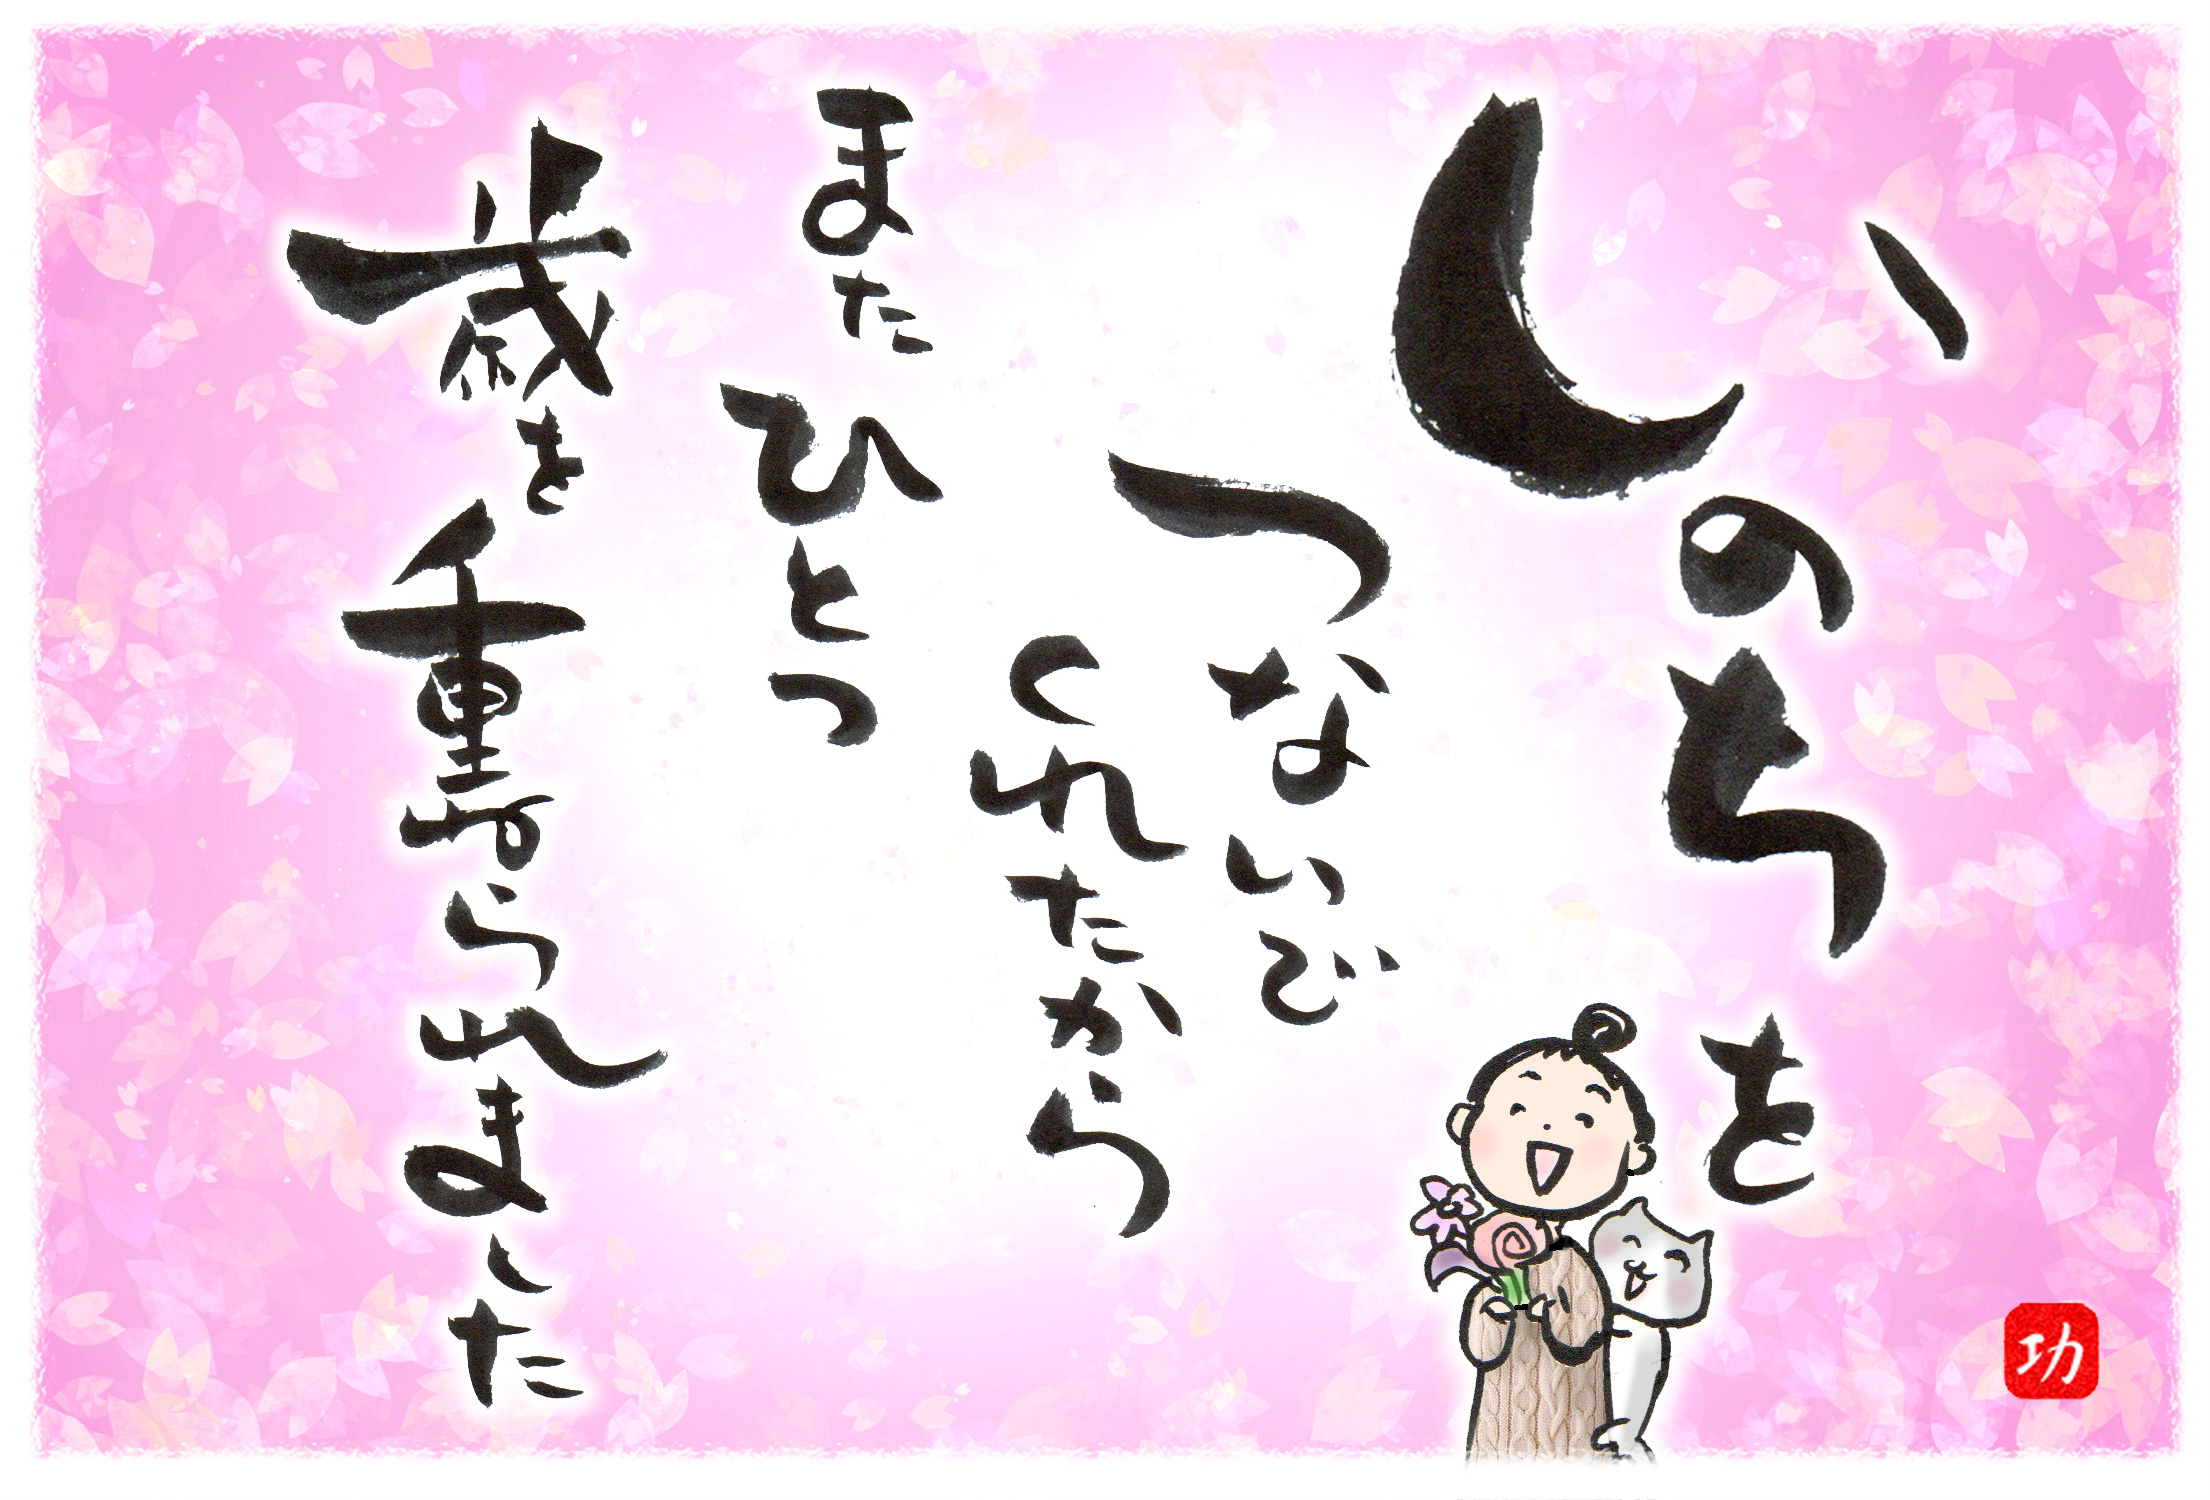 いのちを
つないで
くれたから
また
ひとつ
歳を
重ねられました
功